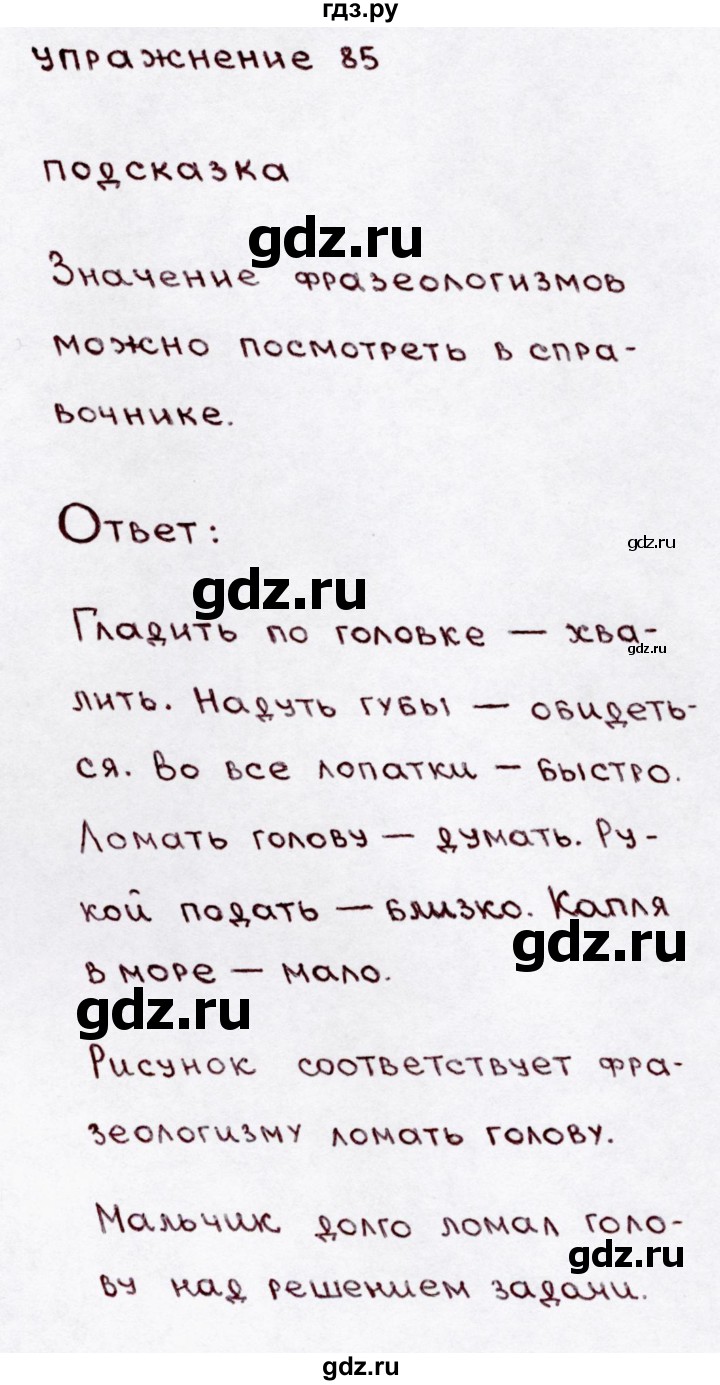 гдз.ру
упражнение 85
подсказка
gdz.ru
Значение фразеологизмов
можно посмотреть в спра-
вочнике.
Ответ:
gdz.ru
gdz.ru
Гладить по головке — хва-
gdz.ru
лить. Надуть губы — обидеть-
ся. Во все лопатки — быстро.
Ломать голову — думать. Ру-
кой подать — близко. Капля
gdz.ru
в море — мало.
gdz.ru
Рисунок соответствует фра-
зеологизму ломать голову.
Мальчик долго ломал голо-
gdz.ru
ву над решением задачи.
gdz.ru